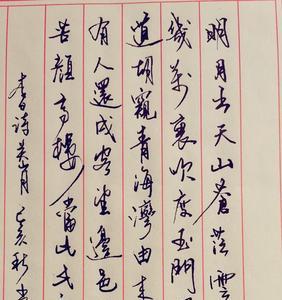 明月出天山蒼茫雲
幾萬裏吹度玉門
道胡窺青海灣由來
有人還戍客望邊邑
苦顏高樓當此夜
李白詩关山月 己亥秋